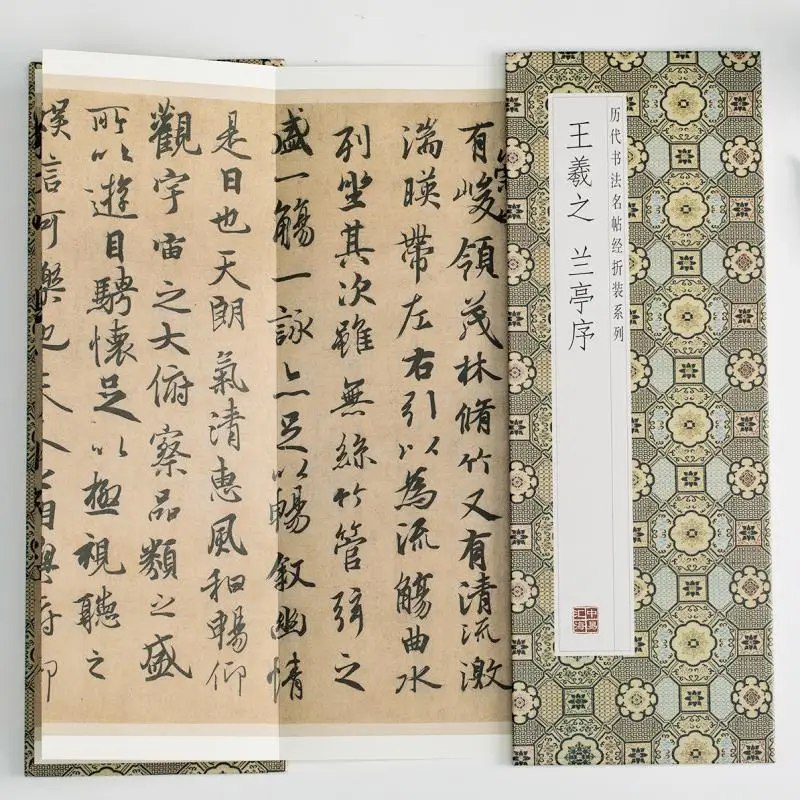 历代书法名帖经折装系列
王羲之 兰亭序
中易汇海
有峻領茂林脩竹又有清流激
湍暎帶左右引以為流觴曲水
列坐其次雖無絲竹管弦之
盛一觴一詠亦足以暢叙幽情
是日也天朗氣清惠風和暢仰
觀宇宙之大俯察品類之盛
所以遊目騁懷足以極視聽之
娛信可樂也夫人之相與俯仰